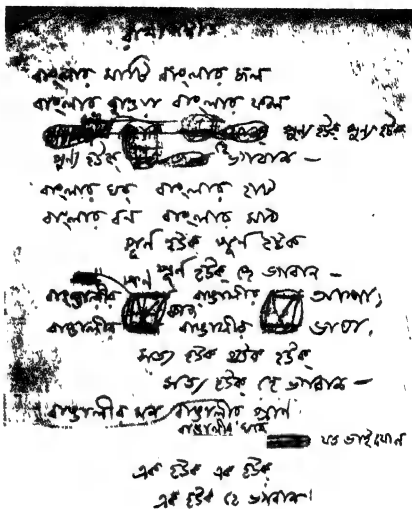 বাংলার মাটি বাংলার জল
বাংলার বায়ু বাংলার ফল
পুণ্য হউক পুণ্য হউক
পুণ্য হউক হে ভগবান –
বাংলার ঘর বাংলার হাট
বাংলার বন বাংলার মাঠ
পূর্ণ হউক পূর্ণ হউক
পূর্ণ হউক হে ভগবান –
বাঙালীর বাঙালীর আশা,
বাঙালীর কাজ বাঙালীর ভাষা,
সত্য হউক সত্য হউক
সত্য হউক হে ভগবান –
বাঙালীর মন বাঙালীর প্রাণ
বাঙালীর ঘরে
যত ভাইবোন
এক হউক এক হউক
এক হউক হে ভগবান।